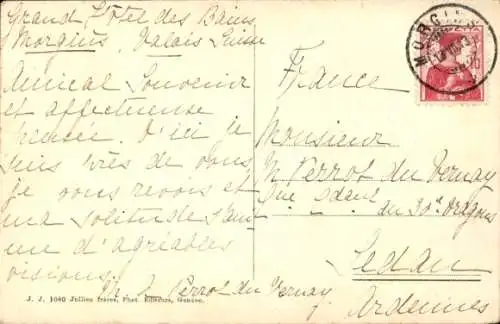 Grand Hôtel des Bains
Morgins, Valais Suisse
Amical Souvenir
et affectueuse
pensée. D'ici je
suis près de vous
je vous revois et
ma solitude s'anime
d'agréables
visions.
Perrot du Vernay
J. J. 1040 Jullien frères, Phot. Editeurs, Genève.
MORGINS
France
Monsieur
M Perrot du Vernay
du 30e Dragons
Sedan
Ardennes